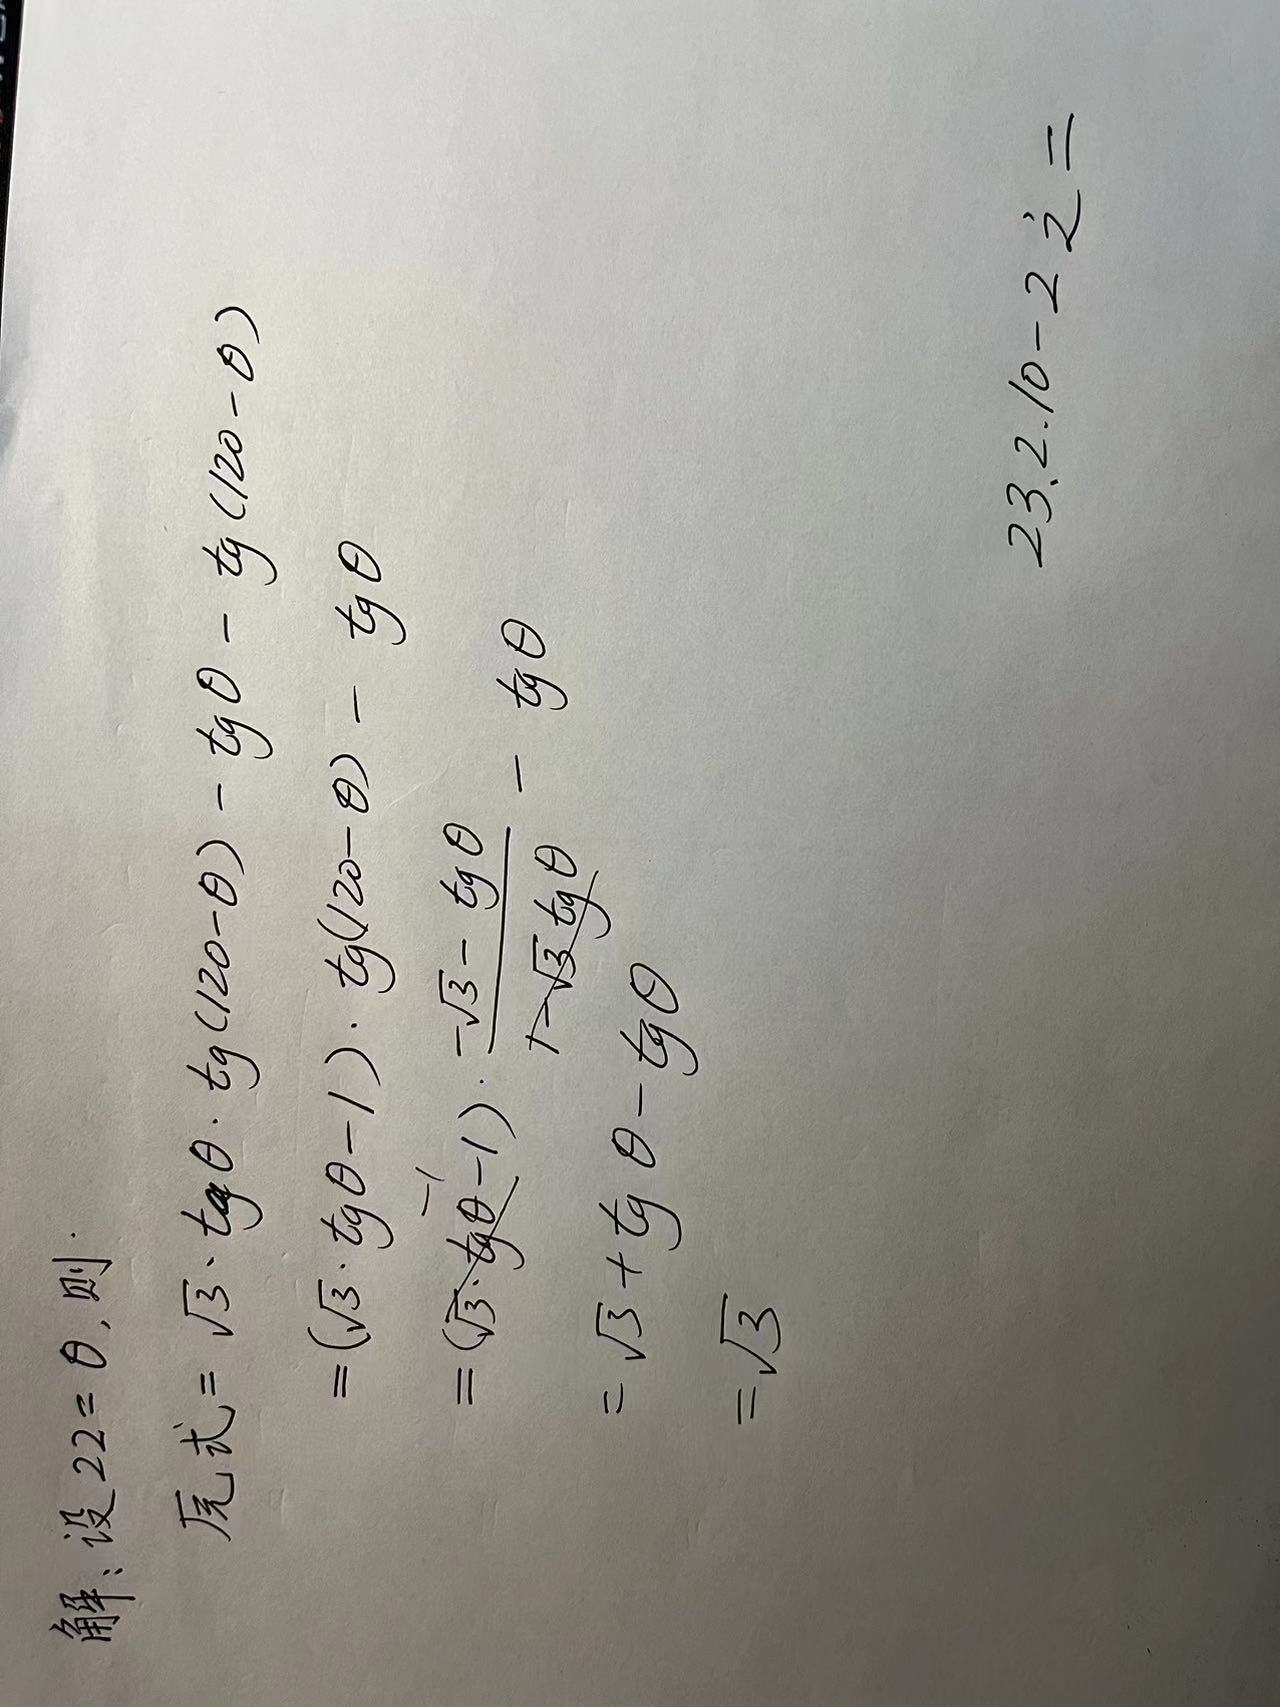 解：设22=θ，则
原式=√3·tgθ·tg(120-θ)-tgθ-tg(120-θ)
=(√3·tgθ-1)·tg(120-θ)-tgθ
=(√3·tgθ-1)^{-1}·\frac{-√3-tgθ}{1-√3tgθ}-tgθ
=√3+tgθ-tgθ
=√3
23.2.10-2之=